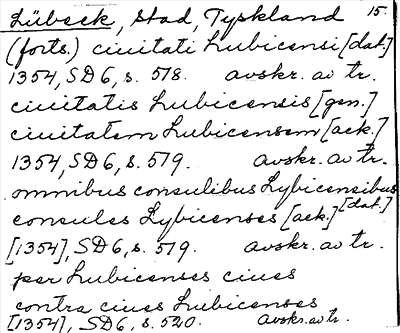 Lübeck, stad, Tyskland 15.
(forts.) ciuitati Lubicensi [dat.]
1354, SD 6, s. 518. avskr. av tr.
ciuitatis Lubicensis [gen.]
ciuitatem Lubicensem [ack.]
1354, SD 6, s. 519. avskr. av tr.
omnibus consulibus Lybicensibus [dat.]
consules Lybicenses [ack.]
[1354], SD 6, s. 519. avskr. av tr.
per Lubicenses ciues
contra ciues Lubicenses
[1354], SD 6, s. 520. avskr. av tr.